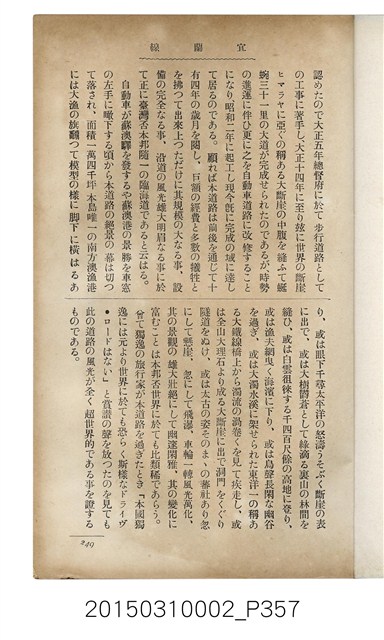 宜蘭線
認めたので大正五年總督府に於て步行道路として
の工事に著手し大正十四年に至り玆に世界の斷崖
ヒマラヤに亞ぐの稱ある大斷崖の中腹を縫ふて蜿
蜿三十一里の大道が完成せられたのであるが、時勢
の進運に伴ひ更に之を自動車道路に改修すること
になり昭和二年に起工し現今旣に完成の域に達し
て居るのである。顧れば本道路は前後を通じて十
有四年の歲月を閱し、巨額の經費と多數の犧牲と
を拂つて出來上つただけに其規模の大なる事、設
備の完全なる事、沿道の風光雄大明眉なる事に於
て正に臺灣否本邦隨一の臨海道であると云はる。
自動車が蘇澳驛を發するや蘇澳港の景勝を車窓
の左手に瞰下する頃から本道路の絕景の幕は切つ
て落され、面積一萬四千坪本島唯一の南方澳漁港
には大漁の旗翻つて模型の樣に脚下に橫はるあ
り、或は眼下千尋太平洋の怒濤うそぶく斷崖の表
に出で、或は大樹鬱蒼として綠滴る裏山の林間を
縫ひ、或は白雲徂徠する千四百尺餘の高地に登り、
或は漁夫網曳く海濱に下り、或は鳥聲長閑な幽谷
を過ぎ、或は大濁水溪に架せられた東洋一の稱あ
る大鐵線橋上から濁流の渦卷くを見て疾走し、或
は全山大理石より成る大斷崖に出で洞門をくぐり
隧道をぬけ、或は太古の姿そのまゝの蕃社あり忽
にして懸崖、忽にして飛瀑、車輪一轉風光萬化、
其の景觀の雄大壯絕にして幽邃閑雅、其の變化に
富むことは本邦否世界に於ても比類稀であらう。
曾て獨逸の旅行家が本道路を過ぎたとき「本國獨
逸には元より世界に於ても恐らく斯樣なドライヴ
・ロードはない」と賞讃の聲を放つたのを見ても
此の道路の風光が全く超世界的である事を證する
ものである。
249
20150310002_P357